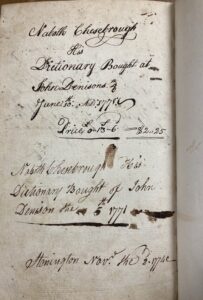 Nabath Chesebrough
His
Dictionary Bought at
John Denisons
June 15: AD. 1771
Price 0-13-6 =$2.25
Nabth Chesebrough His
Dictionary Bought of John
Denison the 5th 1771
Stonington Novr. the